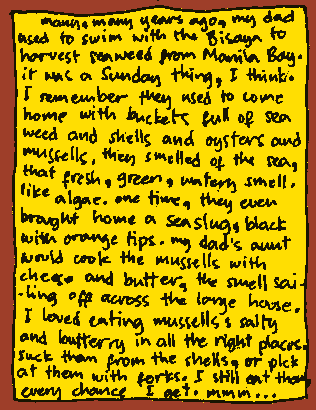 many, many years ago, my dad
used to swim with the Bisaya to
harvest seaweed from Manila Bay.
it was a Sunday thing, I think.
I remember they used to come
home with buckets full of sea
weed and shells and oysters and
mussells, they smelled of the sea,
that fresh, green, watery smell.
like algae. one time, they even
brought home a seaslug, black
with orange tips. my dad's aunt
would cook the mussells with
cheese and butter, the smell sai-
-ling off across the large house.
I loved eating mussells, salty
and butterry in all the right places.
suck them from the shells, or pick
at them with forks. I still eat them
every chance I get. mmm...